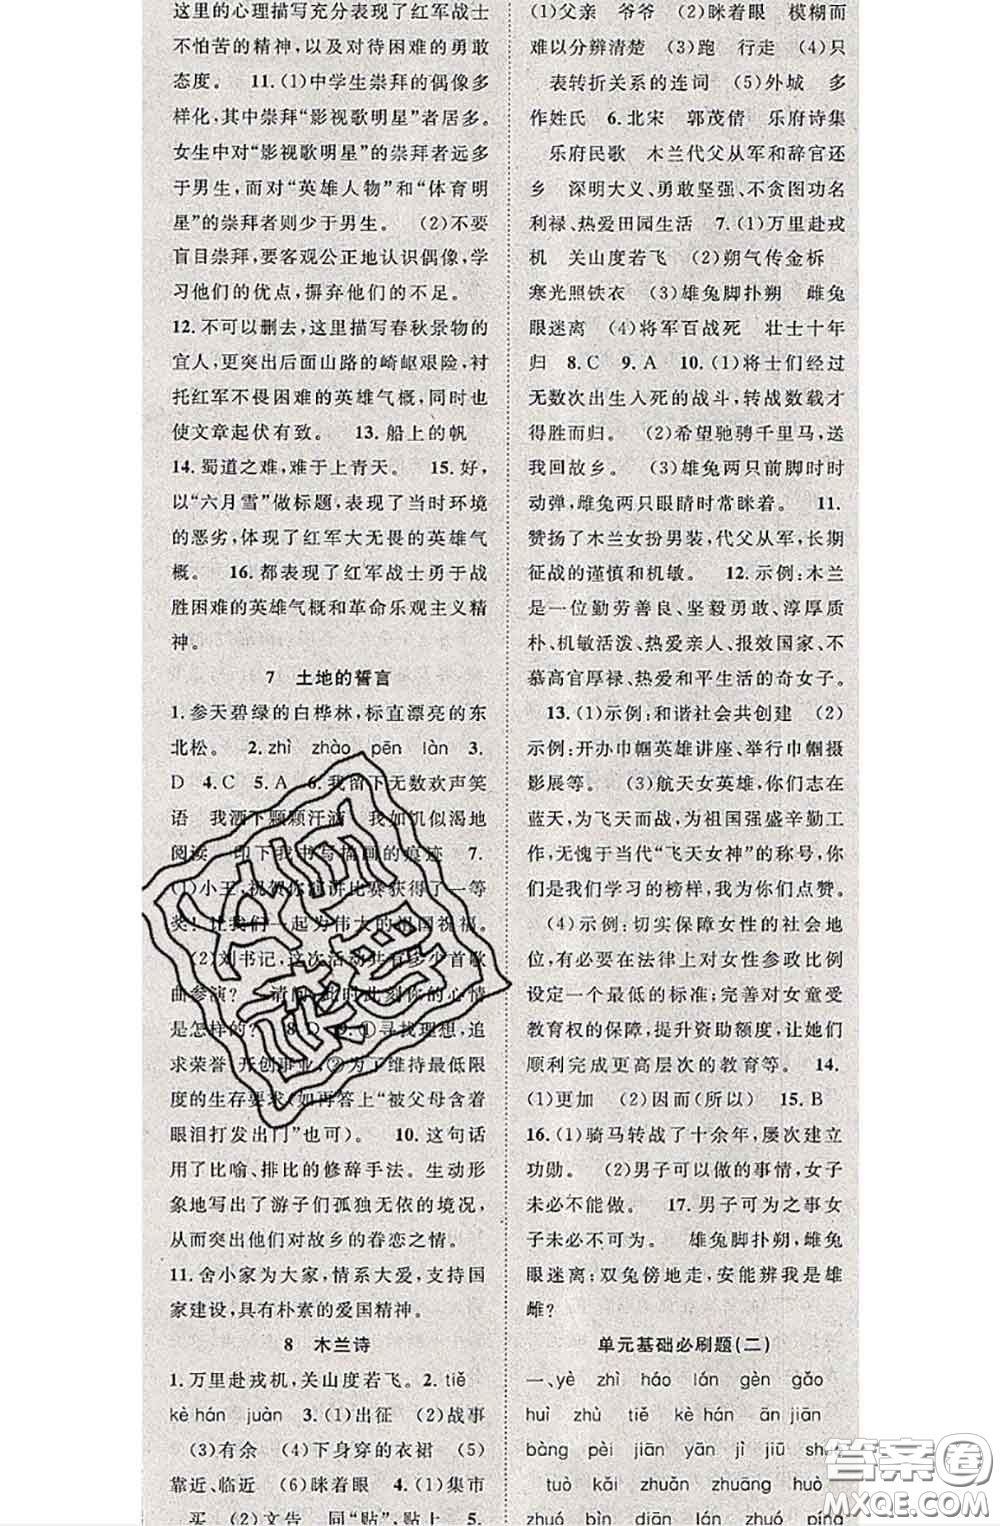 这里的心理描写充分表现了红军战士
不怕苦的精神,以及对待困难的勇敢
态度。 11.(1)中学生崇拜的偶像多
样化,其中崇拜“影视歌明星”者居多。
女生中对“影视歌明星”的崇拜者远多
于男生,而对“英雄人物”和“体育明
星”的崇拜者则少于男生。 (2)不要
盲目崇拜,要客观公正地认识偶像,学
习他们的优点,摒弃他们的不足。
12.不可以删去,这里描写春秋景物的
宜人,更突出后面山路的崎岖艰险,衬
托红军不畏困难的英雄气概,同时也
使文章起伏有致。 13.船上的帆
14.蜀道之难,难于上青天。 15.好,
以“六月雪”做标题,表现了当时环境
的恶劣,体现了红军大无畏的英雄气
概。 16.都表现了红军战士勇于战
胜困难的英雄气概和革命乐观主义精
神。
7 土地的誓言
1.参天碧绿的白桦林,标直漂亮的东
北松。 2.zhì zhào pēn làn 3.
D 4.C 5.A 6.我留下无数欢声笑
语 我洒下颗颗汗滴 我如饥似渴地
阅读 印下我书写描画的痕迹 7.
(1)小王,祝贺你演讲比赛获得了一等
奖!让我们一起为伟大的祖国祝福。
(2)刘书记,这次活动共有多少首歌
曲参演? 请问,此时此刻你的心情
是怎样的? 8.D 9.①寻找理想,追
求荣誉 开创事业,②为了维持最低限
度的生存要求(如再答上“被父母含着
眼泪打发出门”也可)。 10.这句话
用了比喻、排比的修辞手法。生动形
象地写出了游子们孤独无依的境况,
从而突出他们对故乡的眷恋之情。
11.舍小家为大家,情系大爱,支持国
家建设,具有朴素的爱国精神。
8 木兰诗
1.万里赴戎机,关山度若飞。2.tiě
kè hán juàn 3.(1)出征 (2)战事
(3)有余 (4)下身穿的衣裙 (5)
靠近、临近 (6)眯着眼 4.(1)集市
买 (2)文告 同“贴”,贴上 5.
(1)父亲 爷爷 (2)眯着眼 模糊而
难以分辨清楚 (3)跑 行走 (4)只
表转折关系的连词 (5)外城 多
作姓氏 6.北宋 郭茂倩 乐府诗集
乐府民歌 木兰代父从军和辞官还
乡 深明大义、勇敢坚强、不贪图功名
利禄、热爱田园生活 7.(1)万里赴戎
机 关山度若飞 (2)朔气传金柝
寒光照铁衣 (3)雄兔脚扑朔 雌兔
眼迷离 (4)将军百战死 壮士十年
归 8.C 9.A 10.(1)将士们经过
无数次出生入死的战斗,转战数载才
得胜而归。 (2)希望驰骋千里马,送
我回故乡。 (3)雄兔两只前脚时时
动弹,雌兔两只眼睛时常眯着。 11.
赞扬了木兰女扮男装,代父从军,长期
征战的谨慎和机敏。 12.示例:木兰
是一位勤劳善良、坚毅勇敢、淳厚质
朴、机敏活泼、热爱亲人、报效国家、不
慕高官厚禄、热爱和平生活的奇女子。
13.(1)示例:和谐社会共创建 (2)
示例:开办巾帼英雄讲座、举行巾帼摄
影展等。 (3)航天女英雄,你们志在
蓝天,为飞天而战,为祖国强盛辛勤工
作,无愧于当代“飞天女神”的称号,你
们是我们学习的榜样,我为你们点赞。
(4)示例:切实保障女性的社会地
位,有必要在法律上对女性参政比例
设定一个最低的标准;完善对女童受
教育权的保障,提升资助额度,让她们
顺利完成更高层次的教育等。 14.
(1)更加 (2)因而(所以) 15.B
16.(1)骑马转战了十余年,屡次建立
功勋。 (2)男子可以做的事情,女子
未必不能做。 17.男子可为之事女
子未必不可为。 雄兔脚扑朔,雌兔
眼迷离;双兔傍地走,安能辨我是雄
雌?
单元基础必刷题(二)
一、yè zhì háo lán gèn gǎo
huì zhù tiě kè hán ān jiān
bàng pèi jiān yān jì jiū
tuò kǎi zhuǎn zhuāng duó
zhuó bìn guō lán zhuó píng
答案圈
MXQE.COM